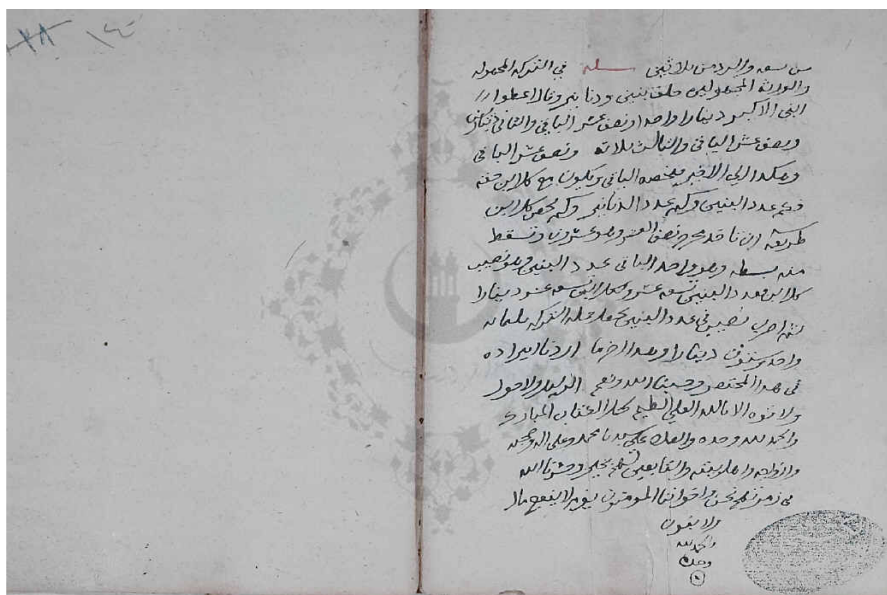 من تسعة والرد من ثلاثين مسئلة في التركة المجهولة
والورثة المجهولين خلف بنين ودنانير وقال اعطوا
ابني الاكبر دينارا واحدا ونصف عشر الباقي والثاني دينارين
ونصف عشر الباقي والثالث ثلاثة ونصف عشر الباقي
وهكذا الى الاخير فخصه الباقي ويكون مع كل ابن حقه
فكم عدد البنين وكم عدد الدنانير وكم يخص كل ابن
طريقه ان تاخذ مخرج نصف العشر وهو عشرون وتسقط
منه بسطه وهو واحد الباقي عدد البنين وهو نصيب
كل ابن فعدد البنين تسعة عشر ولكل ابن تسعة عشر دينارا
ثم اضرب نصيبه في عدد البنين يحصل جملة التركة ثلثمائة
واحد وستون دينارا وهذا اخر ما اردنا ايراده
في هذا المختصر وحسبنا الله ونعم الوكيل ولا حول
ولا قوة الا بالله العلي العظيم كمل الكتاب المبارك
والحمد لله وحده والصلاة على سيدنا محمد وعلى اله وصحبه
وازواجه واهل بيته والتابعين لهم وحشرنا الله
في زمرتهم نحن واخواننا المؤمنون يوم لا ينفع مال
ولا بنون
والحمد لله
وحده